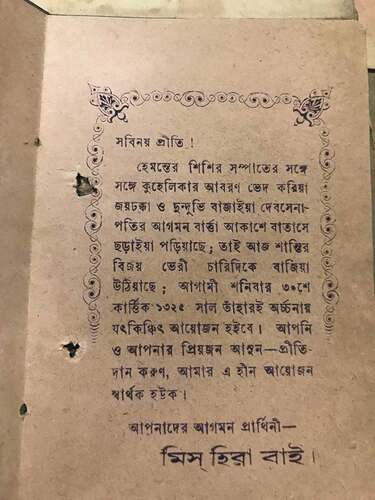 সবিনয় প্রীতি !
হেমন্তের শিশির সম্পাতের সঙ্গে
সঙ্গে কুহেলিকার আবরণ ভেদ করিয়া
জয়ঢক্কা ও দুন্দুভি বাজাইয়া দেবসেনা-
পতির আগমন বার্ত্তা আকাশে বাতাসে
ছড়াইয়া পড়িয়াছে ; তাই আজ শান্তির
বিজয় ভেরী চারিদিকে বাজিয়া
উঠিয়াছে ; আগামী শনিবার ৩০শে
কার্ত্তিক ১৩২৫ সাল তাঁহারই অর্চ্চনায়
যৎকিঞ্চিৎ আয়োজন হইবে। আপনি
ও আপনার প্রিয়জন আসুন—প্রীতি-
দান করুণ, আমার এ হীন আয়োজন
স্বার্থক হউক।
আপনাদের আগমন প্রার্থিনী—
মিস্ হিরা বাই।